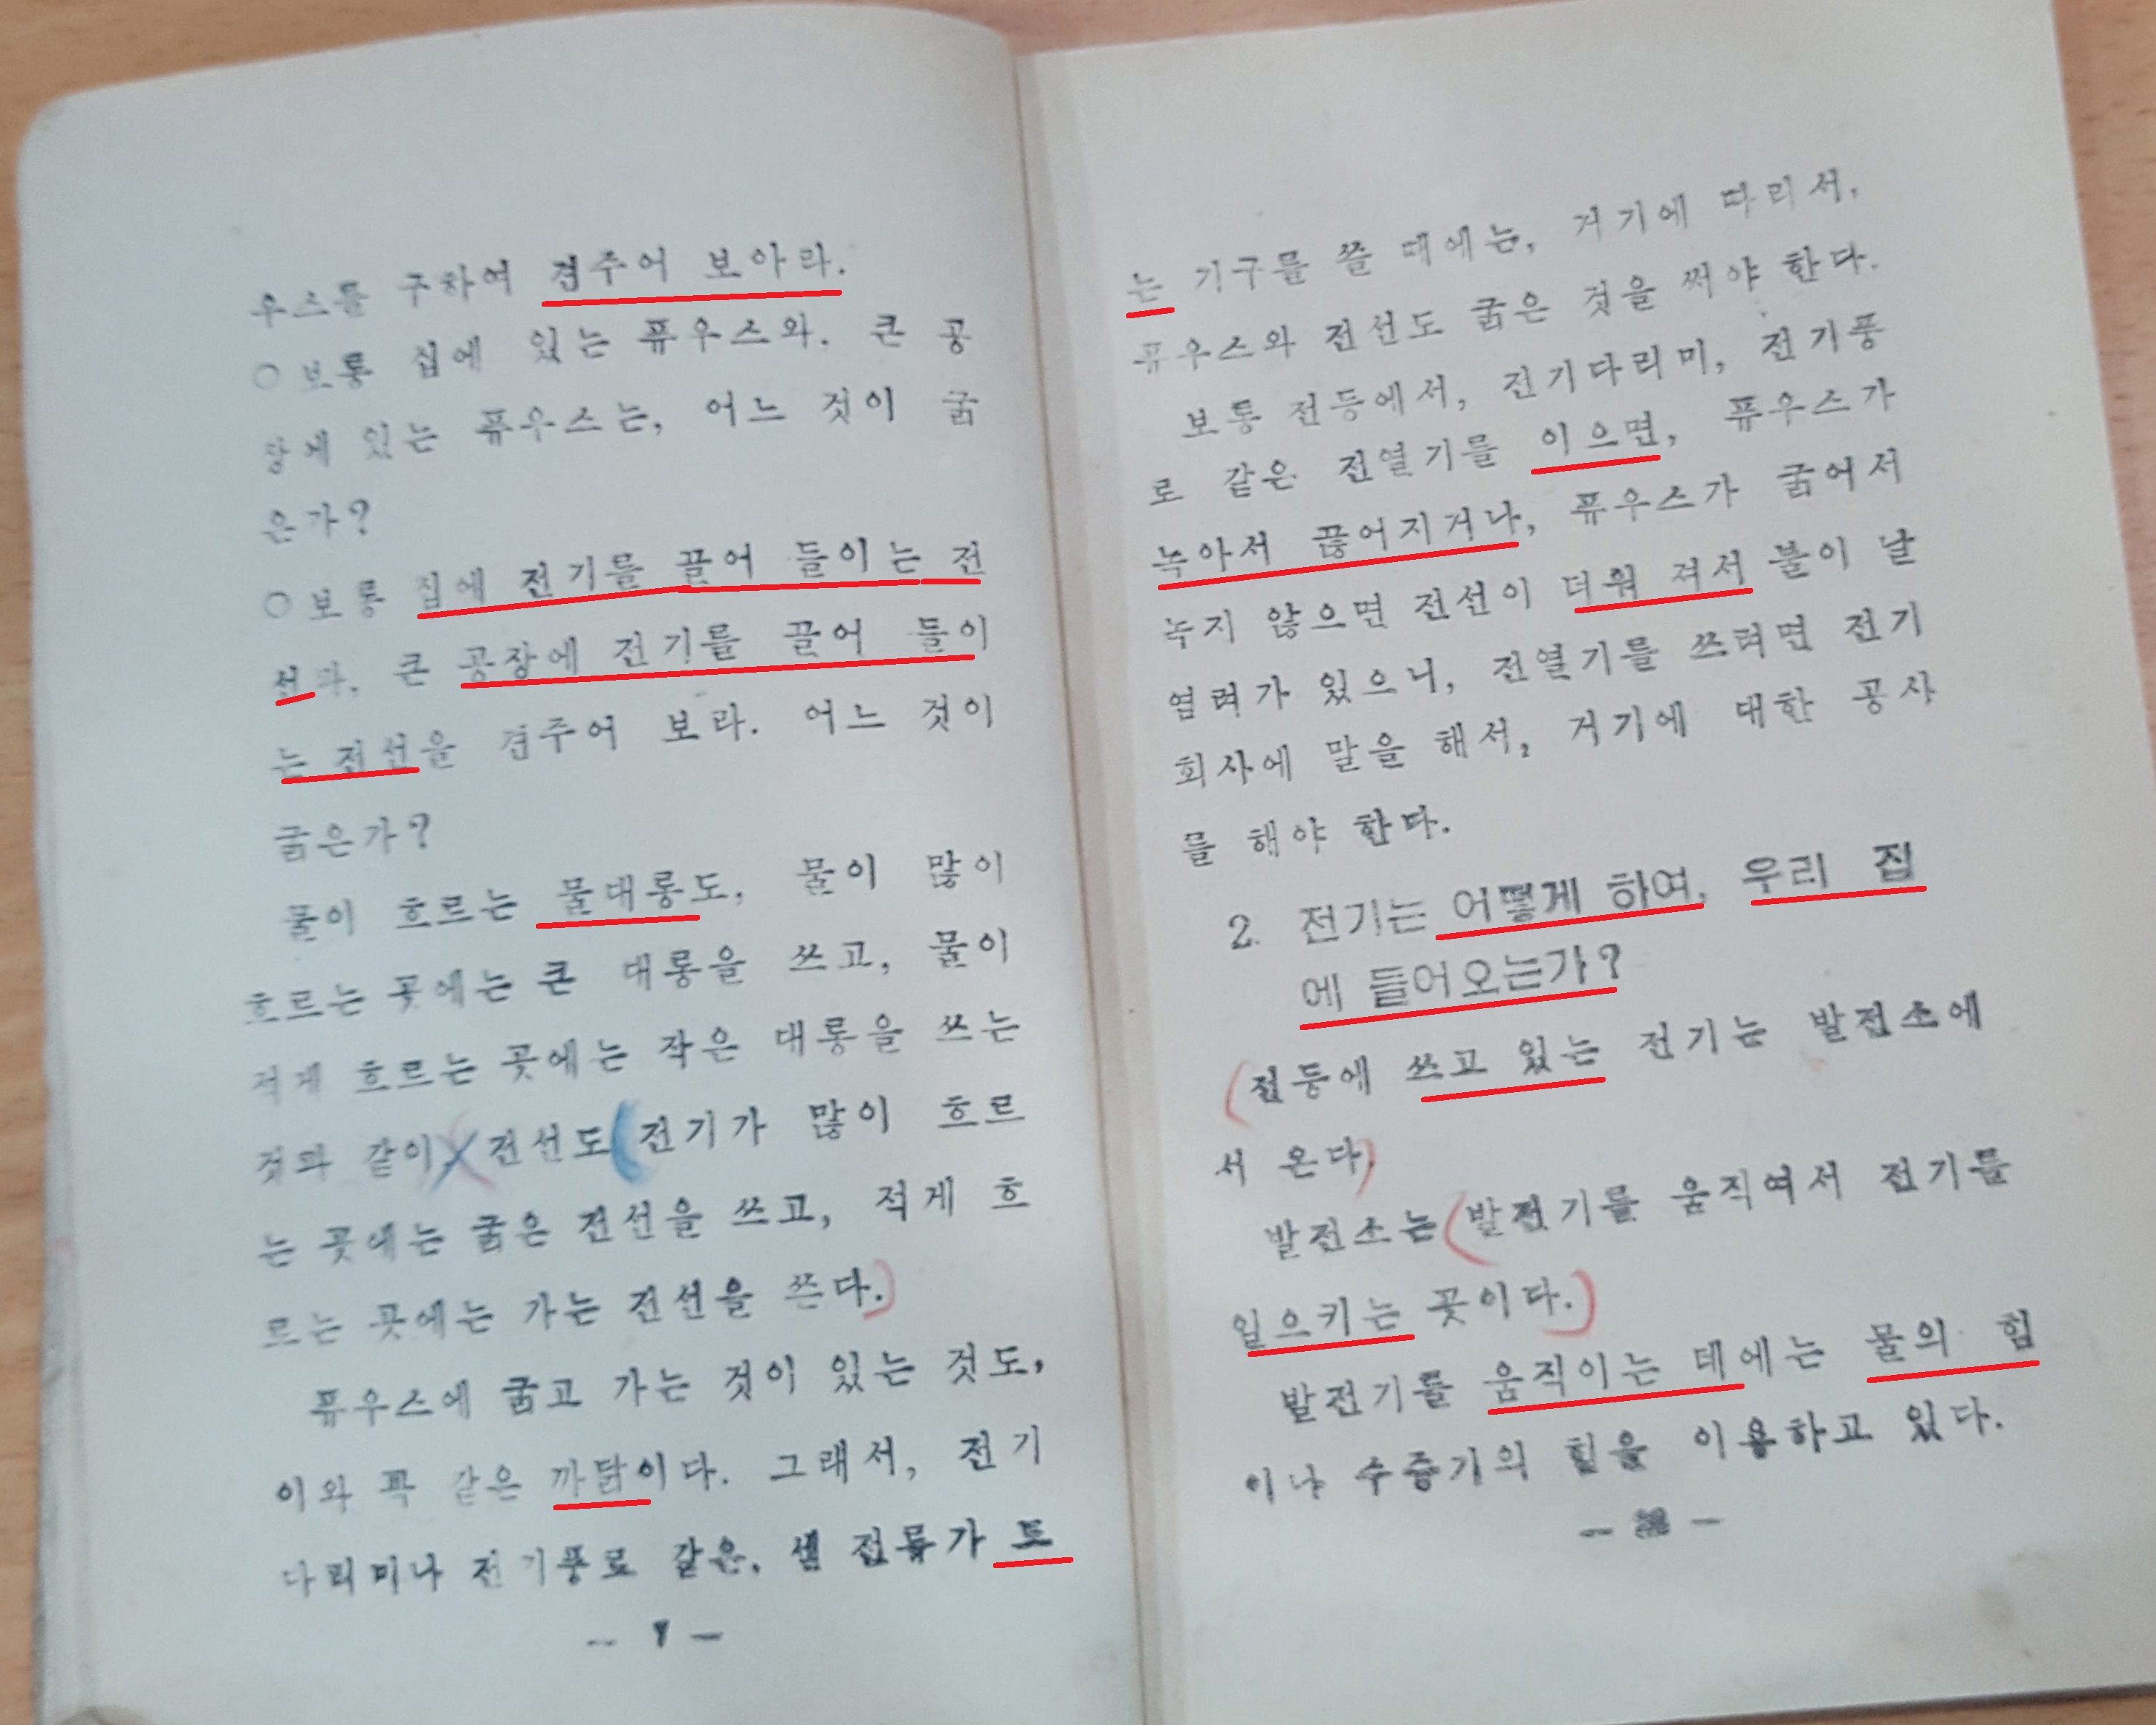 우스를 구하여 견주어 보아라.
○보통 집에 있는 퓨우스와, 큰 공
장에 있는 퓨우스는, 어느 것이 굵
은가?
○보통 집에 전기를 끌어 들이는 전
선과, 큰 공장에 전기를 끌어 들이
는 전선을 견주어 보라. 어느 것이
굵은가?
물이 흐르는 물대롱도, 물이 많이
흐르는 곳에는 큰 대롱을 쓰고, 물이
적게 흐르는 곳에는 작은 대롱을 쓰는
것과 같이, 전선도 전기가 많이 흐르
는 곳에는 굵은 전선을 쓰고, 적게 흐
르는 곳에는 가는 전선을 쓴다.
퓨우스에 굵고 가는 것이 있는 것도,
이와 꼭 같은 까닭이다. 그래서, 전기
다리미나 전기풍로 같은, 센 전류가 도
는 기구를 쓸 때에는, 거기에 따리서,
퓨우스와 전선도 굵은 것을 써야 한다.
보통 전등에서, 전기다리미, 전기풍
로 같은 전열기를 이으면, 퓨우스가
녹아서 끊어지거나, 퓨우스가 굵어서
녹지 않으면 전선이 더워 져서 불이 날
염려가 있으니, 전열기를 쓰려면 전기
회사에 말을 해서, 거기에 대한 공사
를 해야 한다.
2. 전기는 어떻게 하여, 우리 집
에 들어오는가?
전등에 쓰고 있는 전기는 발전소에
서 온다
발전소는 발전기를 움직여서 전기를
일으키는 곳이다.
발전기를 움직이는 데에는 물의 힘
이나 수증기의 힘을 이용하고 있다.